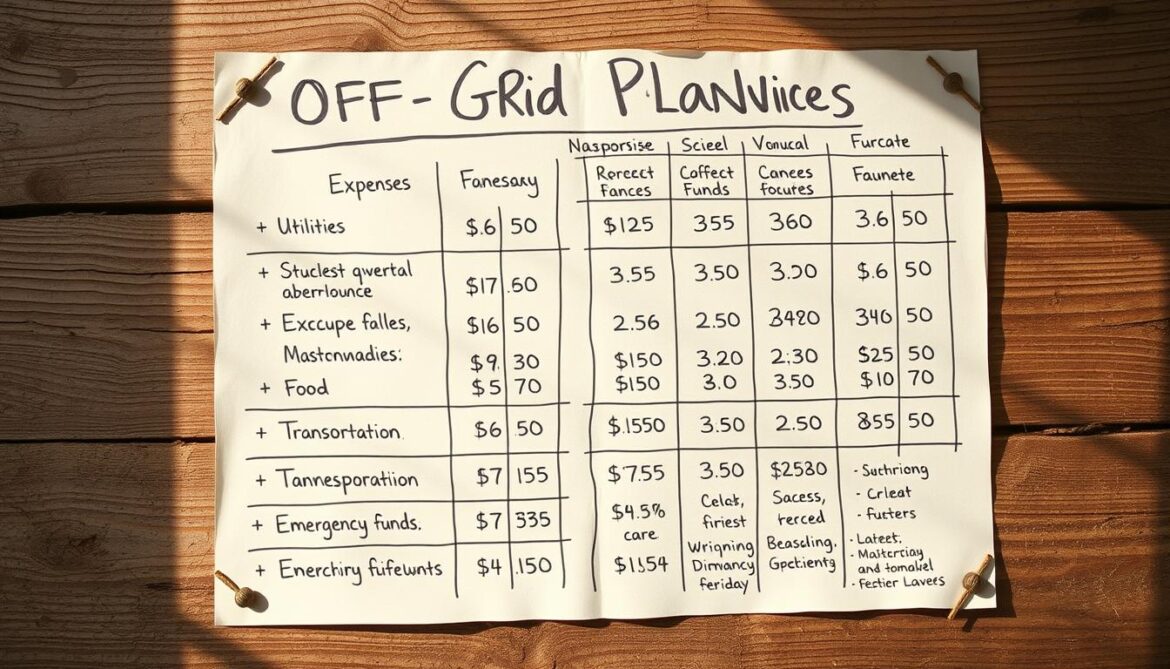 OFF-GRid PLaNViices
Nasporsise Scieel Vonucal Furcate
Expenses Fanesary Rorect Fances Coffect Funds Canees focures Faunete
+ Utilities $.6 50 $125 355 360 3.6 50
+ Stuclest qwertal $17 .60 3.55 3.50 3.50 $.6 50
aberrlounce
+ Exccupe falles, $16 50 2.56 2.50 3420 340 50
Mastcnnadies: $9. 30 $150 3.20 2:30 $25 50
+ Food $5 70 $150 3.0 3.50 $10 70
+ Transortation. $6 .50 $.1550 3.50 2.50 855 50
+ Tannesporatiion $7 155 $7.55 3.50 $2530 - Suchriong
Celct, firiest Sacess, rerced - Crleat
+ Emergency funds. $7 335 $4.5% care - fucters
Wriqning Beascling. - Lateet.
Dimancy Gpctients - Maitcrciay
+ Enerchiry fiifewnts $4 .150 $1.554 feriday and tomaliel
- fectier Lavees